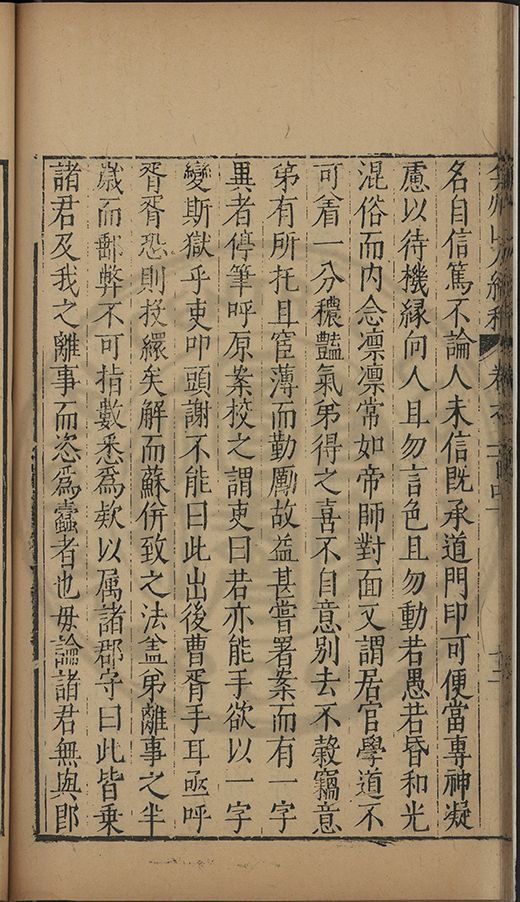 名自信篤不論人未信既承道門印可便當專神凝
慮以待機縁向人且勿言色且勿動若愚若昏和光
混俗而内念凛凛常如帝師對面又謂居官學道不
可着一分穠豔氣弟得之喜不自意別去不穀竊意
弟有所托且宦薄而勤勵故益甚嘗署案而有一字
異者停筆呼原案校之謂吏曰若亦能手欲以一字
變斯獄乎吏叩頭謝不能曰此出後曹胥手耳亟呼
胥胥恐則投繯矣解而蘇併致之法盖弟離事之半
歳而鄙弊不可指數悉爲欵以属諸郡守曰此皆乗
諸君及我之離事而恣爲蠹者也毋論諸君無與卽